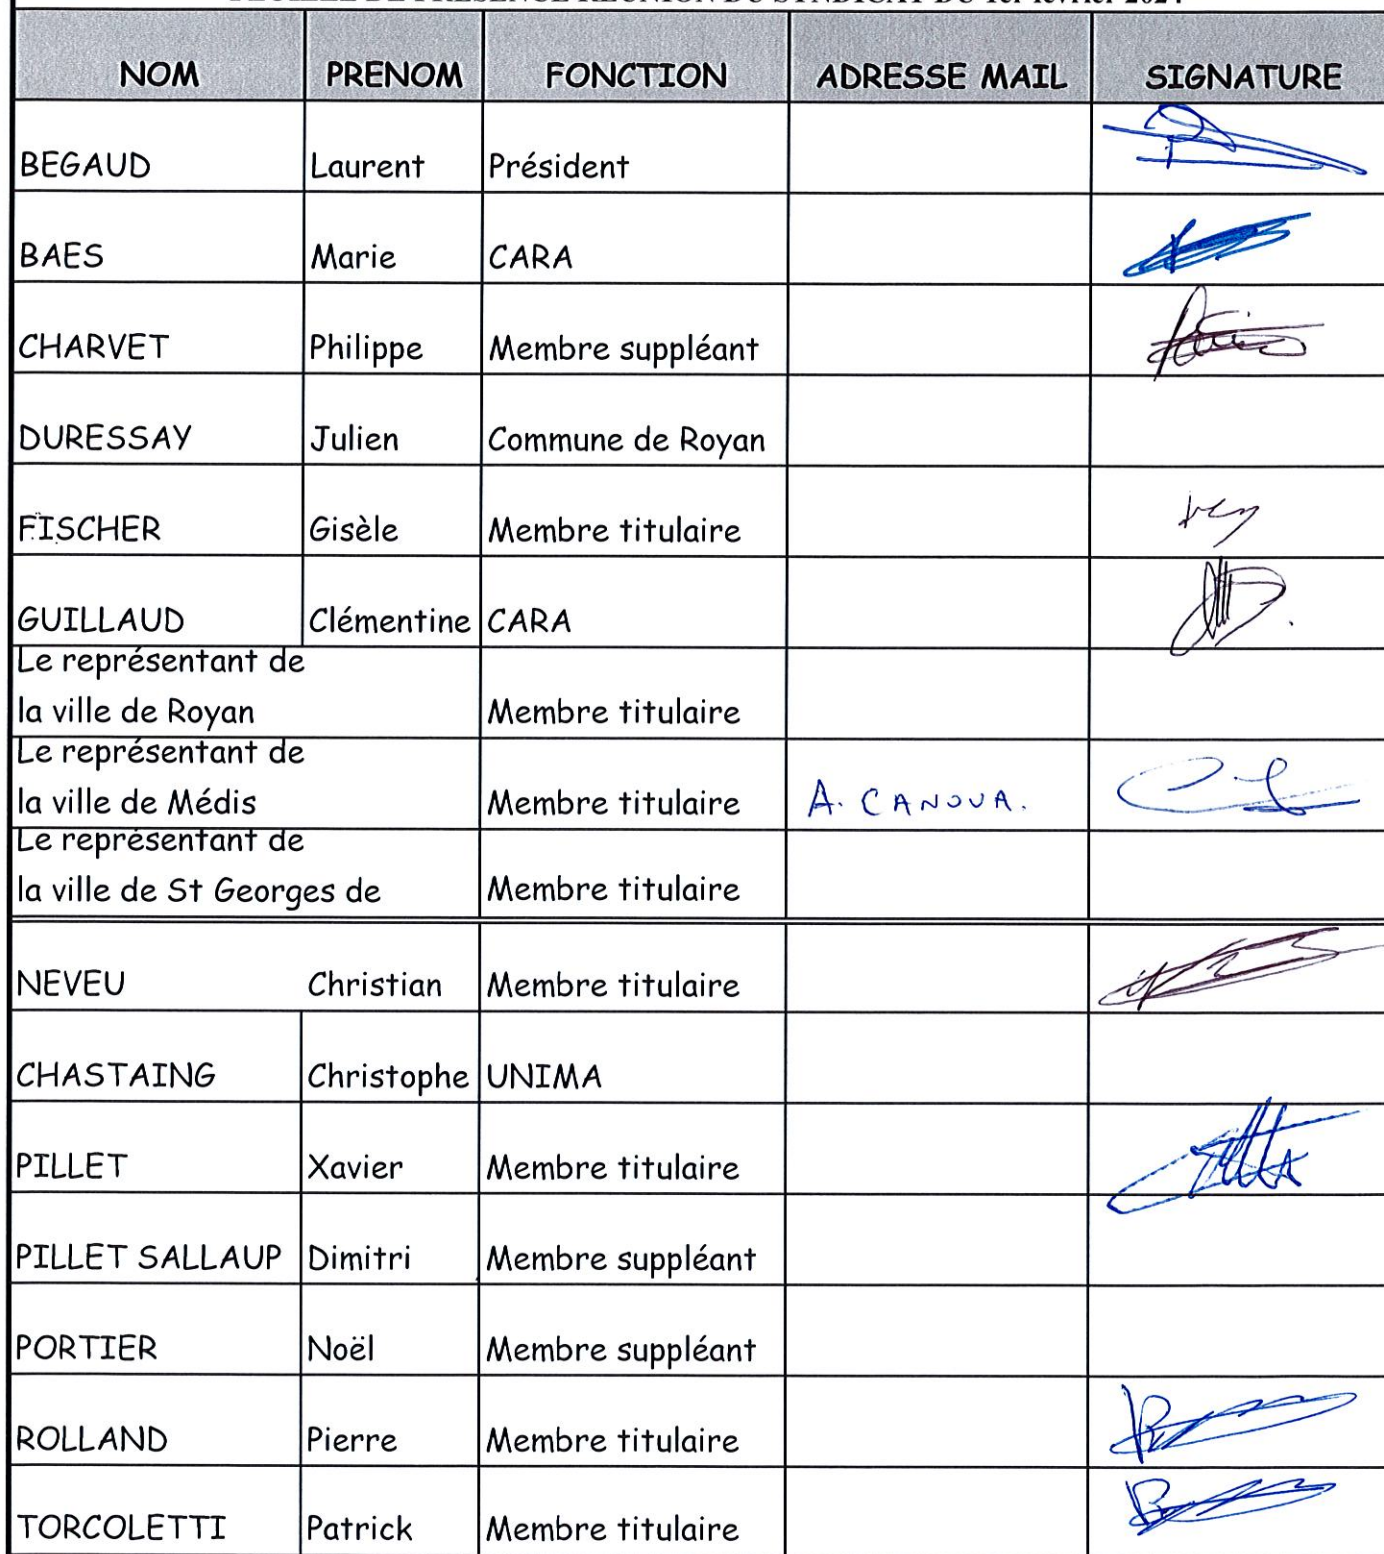 FEUILLE DE PRESENCE REUNION DU SYNDICAT DU 1er février 2024
NOM PRENOM FONCTION ADRESSE MAIL SIGNATURE
BEGAUD Laurent Président
BAES Marie CARA
CHARVET Philippe Membre suppléant
DURESSAY Julien Commune de Royan
FISCHER Gisèle Membre titulaire
GUILLAUD Clémentine CARA
Le représentant de
la ville de Royan Membre titulaire
Le représentant de
la ville de Médis Membre titulaire A. CANOVA.
Le représentant de
la ville de St Georges de Membre titulaire
NEVEU Christian Membre titulaire
CHASTAING Christophe UNIMA
PILLET Xavier Membre titulaire
PILLET SALLAUP Dimitri Membre suppléant
PORTIER Noël Membre suppléant
ROLLAND Pierre Membre titulaire
TORCOLETTI Patrick Membre titulaire